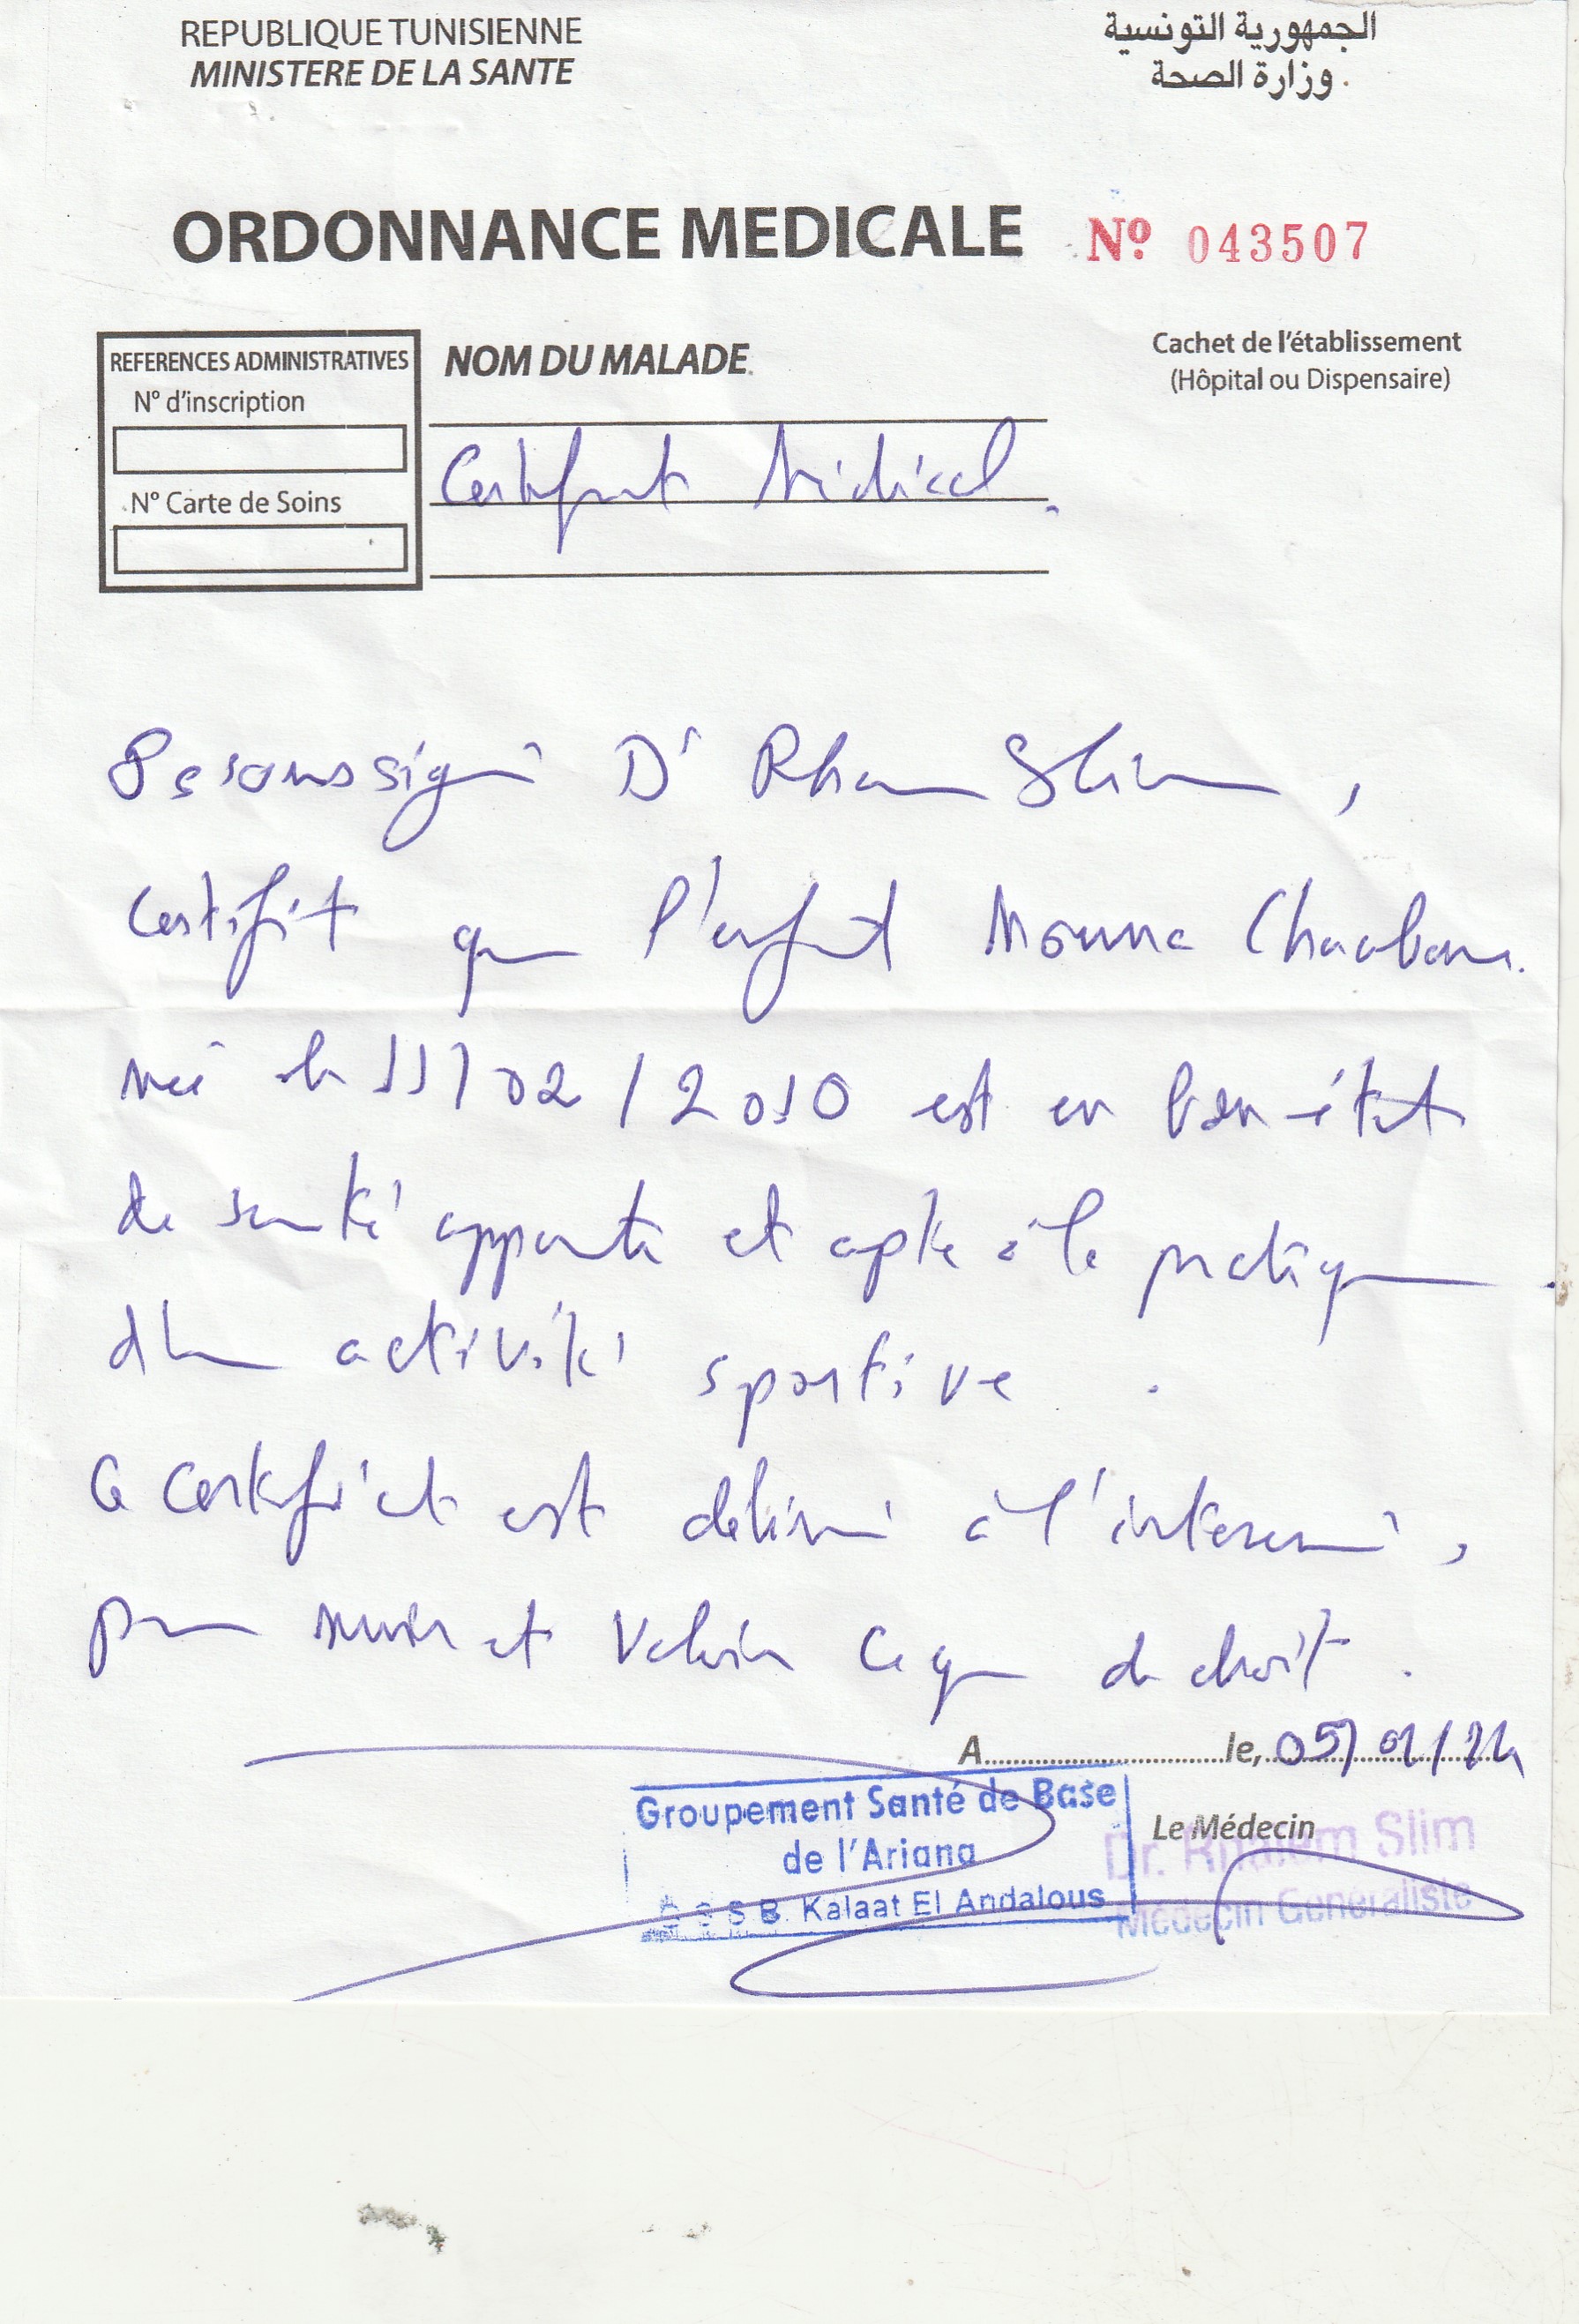 REPUBLIQUE TUNISIENNE
MINISTERE DE LA SANTE
الجمهورية التونسية
وزارة الصحة
ORDONNANCE MEDICALE Nº 043507
REFERENCES ADMINISTRATIVES
N° d'inscription
N° Carte de Soins
NOM DU MALADE
Cachet de l'établissement
(Hôpital ou Dispensaire)
Certificat Médical
soussigné Dr Slim,
certifit que l'enfant Mouna
née le 11/02/2010 est en bon état
de santé apparente et apte à la pratique
d'une activité sportive.
Ce certificat est délivré à l'interessé,
pour servir et valoir ce que de droit.
A le, 05/01/24
Groupement Santé de Base
de l'Ariana
S B. Kalaat El Andalous
Le Médecin
Dr. Slim
Médecin Généraliste